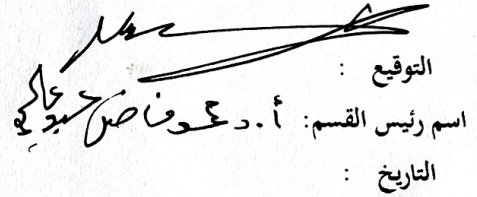 التوقيع :
اسم رئيس القسم: أ.د محمد فاضل
التاريخ :